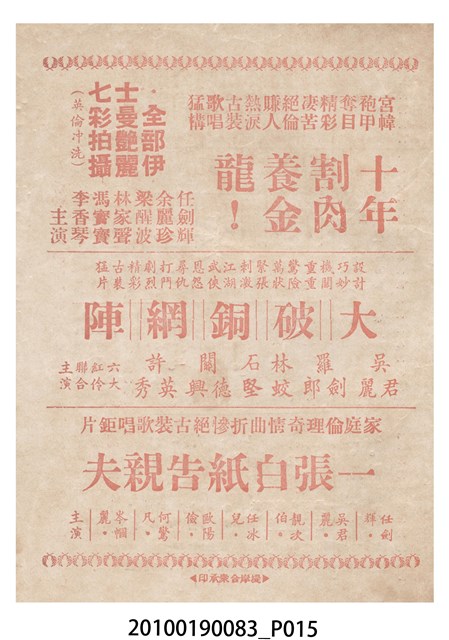 宮幃袍甲奪目精彩凄苦絕倫賺人熱淚古裝歌唱猛構
十年割肉養金龍！
·全部伊士曼艷麗七彩拍攝
(英倫沖洗)
任劍輝
余麗珍
梁醒波
林家聲
馮寶寶
李香琴
主演
設計巧妙機關重重驚險萬狀緊張刺激江湖武俠恩怨尋仇打鬥劇烈精彩古裝猛片
大破銅網陣
吳君麗
羅劍郎
林蛟
石堅
關德興
許英秀
六大紅伶聯合主演
家庭倫理奇情曲折慘絕古裝歌唱鉅片
一張白紙告親夫
任劍輝·吳君麗·靚次伯·任冰兒·歐陽儉·何驚凡·岑幗麗
主演
合衆承印
20100190083_P015